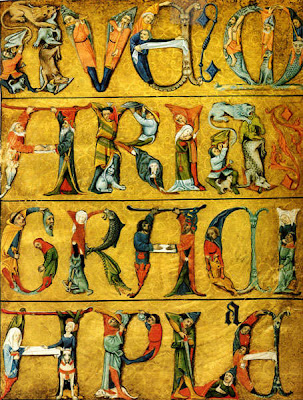 AVE M
ARIA
GRACI
A PLA